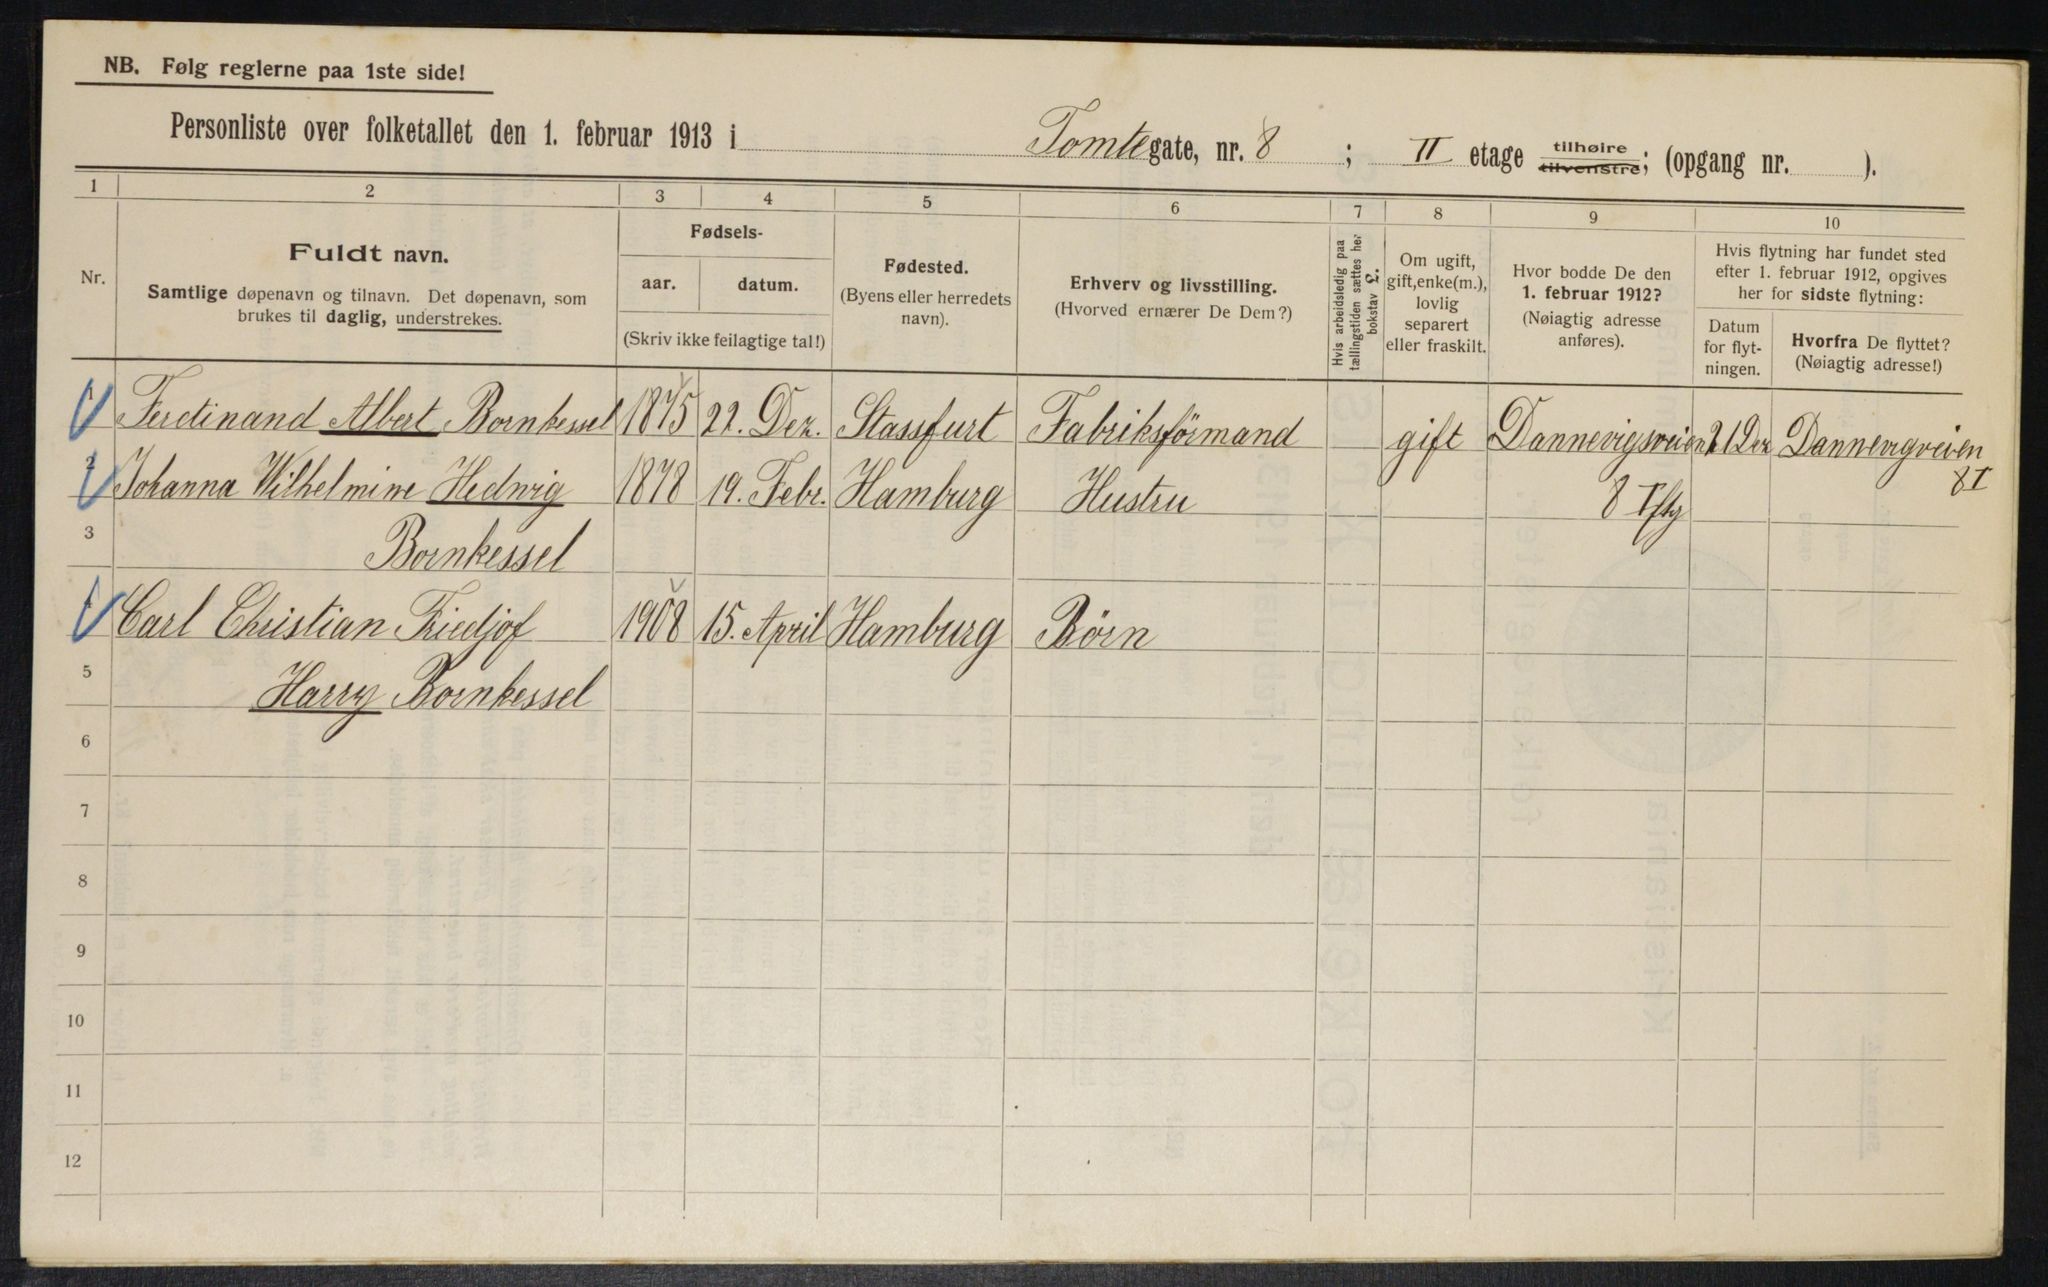 NB. Følg reglerne paa 1ste side!
Personliste over folketallet den 1. februar 1913 i Tomtegate, nr. 8 ; II etage tilhøire tilvenstre; (opgang nr. ).
1 2 3 4 5 6 7 8 9 10
Nr.
Fuldt navn.
Samtlige døpenavn og tilnavn. Det døpenavn, som
brukes til daglig, understrekes.
Fødsels-
aar. datum.
(Skriv ikke feilagtige tal!)
Fødested.
(Byens eller herredets
navn).
Erhverv og livsstilling.
(Hvorved ernærer De Dem?)
Hvis arbeidsledig paa
tællingstiden sættes her
bokstav L.
Om ugift,
gift, enke(m.),
lovlig
separert
eller fraskilt.
Hvor bodde De den
1. februar 1912?
(Nøiagtig adresse
anføres).
Hvis flytning har fundet sted
efter 1. februar 1912, opgives
her for sidste flytning:
Datum
for flyt-
ningen.
Hvorfra De flyttet?
(Nøiagtig adresse!)
1 Ferdinand Albert Bornkessel 1875 22. Dez. Stassfurt Fabriksførmand gift Dannevigsveien 21 Dez Dannevigveien
2 Johanna Wilhelmine Hedwig 1878 19. Febr. Hamburg Hustru 8 I 8 I
3 Bornkessel
4 Carl Christian Friedjof 1908 15. April Hamburg Børn
5 Harry Bornkessel
6
7
8
9
10
11
12